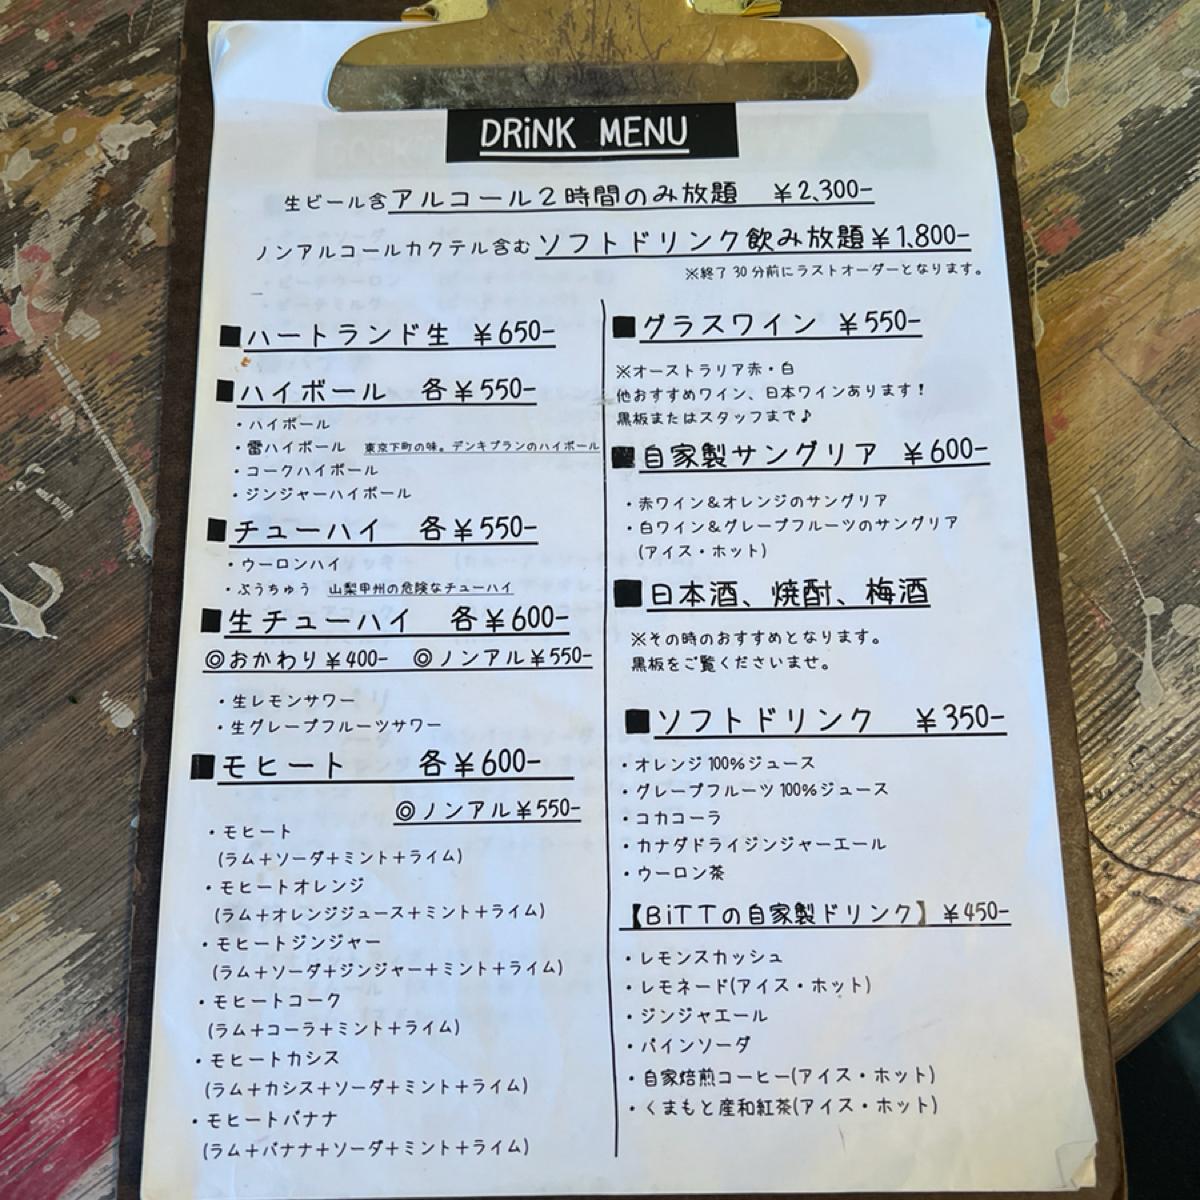 DRiNK MENU
生ビール含アルコール2時間のみ放題 ¥2,300-
ノンアルコールカクテル含むソフトドリンク飲み放題¥1,800-
※終了30分前にラストオーダーとなります。
■ハートランド生 ¥650-
■ハイボール 各¥550-
・ハイボール
・雷ハイボール 東京下町の味。デンキブランのハイボール
・コークハイボール
・ジンジャーハイボール
■チューハイ 各¥550-
・ウーロンハイ
・ぶうちゅう 山梨甲州の危険なチューハイ
■生チューハイ 各¥600-
◎おかわり¥400- ◎ノンアル¥550-
・生レモンサワー
・生グレープフルーツサワー
■モヒート 各¥600-
◎ノンアル¥550-
・モヒート
(ラム+ソーダ+ミント+ライム)
・モヒートオレンジ
(ラム+オレンジジュース+ミント+ライム)
・モヒートジンジャー
(ラム+ソーダ+ジンジャー+ミント+ライム)
・モヒートコーク
(ラム+コーラ+ミント+ライム)
・モヒートカシス
(ラム+カシス+ソーダ+ミント+ライム)
・モヒートバナナ
(ラム+バナナ+ソーダ+ミント+ライム)
■グラスワイン ¥550-
※オーストラリア赤・白
他おすすめワイン、日本ワインあります!
黒板またはスタッフまで♪
■自家製サングリア ¥600-
・赤ワイン&オレンジのサングリア
・白ワイン&グレープフルーツのサングリア
(アイス・ホット)
■日本酒、焼酎、梅酒
※その時のおすすめとなります。
黒板をご覧くださいませ。
■ソフトドリンク ¥350-
・オレンジ100%ジュース
・グレープフルーツ100%ジュース
・コカコーラ
・カナダドライジンジャーエール
・ウーロン茶
【BiTTの自家製ドリンク】¥450-
・レモンスカッシュ
・レモネード(アイス・ホット)
・ジンジャエール
・パインソーダ
・自家焙煎コーヒー(アイス・ホット)
・くまもと産和紅茶(アイス・ホット)